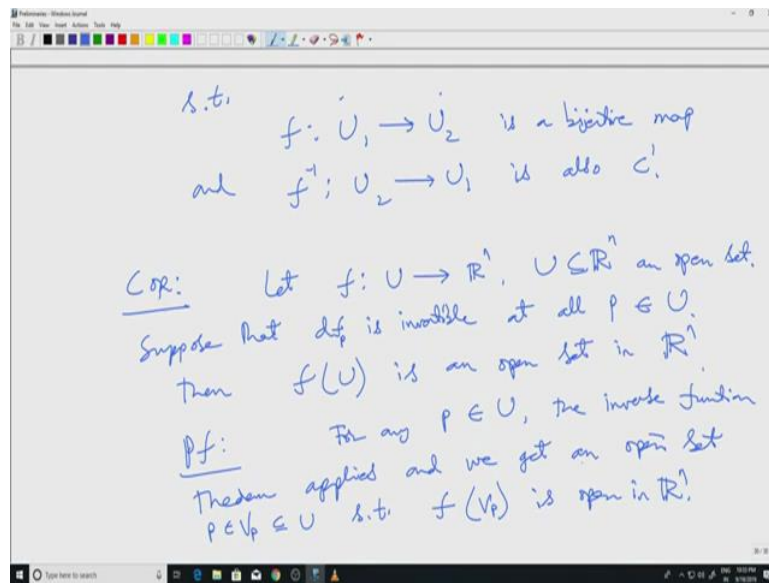 Preliminaries - Windows Journal
File Edit View Insert Actions Tools Help
s.t.
f: U₁ → U₂ is a bijective map
and f⁻¹: U₂ → U₁ is also C¹.
Cor: Let f: U → ℝⁿ, U ⊆ ℝⁿ an open set.
Suppose that df_p is invertible at all p ∈ U.
Then f(U) is an open set in ℝⁿ
Pf: For any p ∈ U, the inverse function
theorem applies and we get an open set
p ∈ V_p ⊆ U s.t. f(V_p) is open in ℝⁿ.
Type here to search